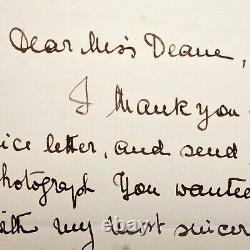 Dear Miss Deane,
I thank you
ice letter, and send
hotograph You wanted
ith my most sincer